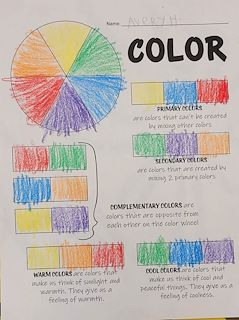 Name: AVERY H.
COLOR
PRIMARY COLORS
are colors that can't be created
by mixing other colors
SECONDARY COLORS
are colors that are created by
mixing 2 primary colors
COMPLEMENTARY COLORS are
colors that are opposite from
each other on the color wheel
WARM COLORS are colors that
make us think of sunlight and
warmth. They give us a
feeling of warmth.
COOL COLORS are colors that
make us think of cool and
peaceful things. They give us a
feeling of coolness.